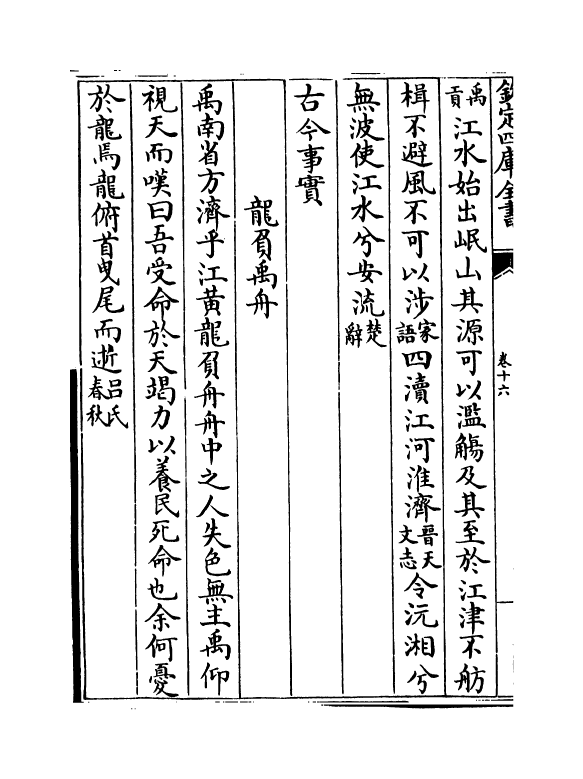 欽定四庫全書
卷十六
禹貢江水始出岷山其源可以濫觴及其至於江津不舫
楫不避風不可以涉家語四瀆江河淮濟晉天文志令沅湘兮
無波使江水兮安流楚辭
古今事實
龍負禹舟
禹南省方濟乎江黃龍負舟舟中之人失色無主禹仰
視天而嘆曰吾受命於天竭力以養民死命也余何憂
於龍焉龍俯首曳尾而逝呂氏春秋